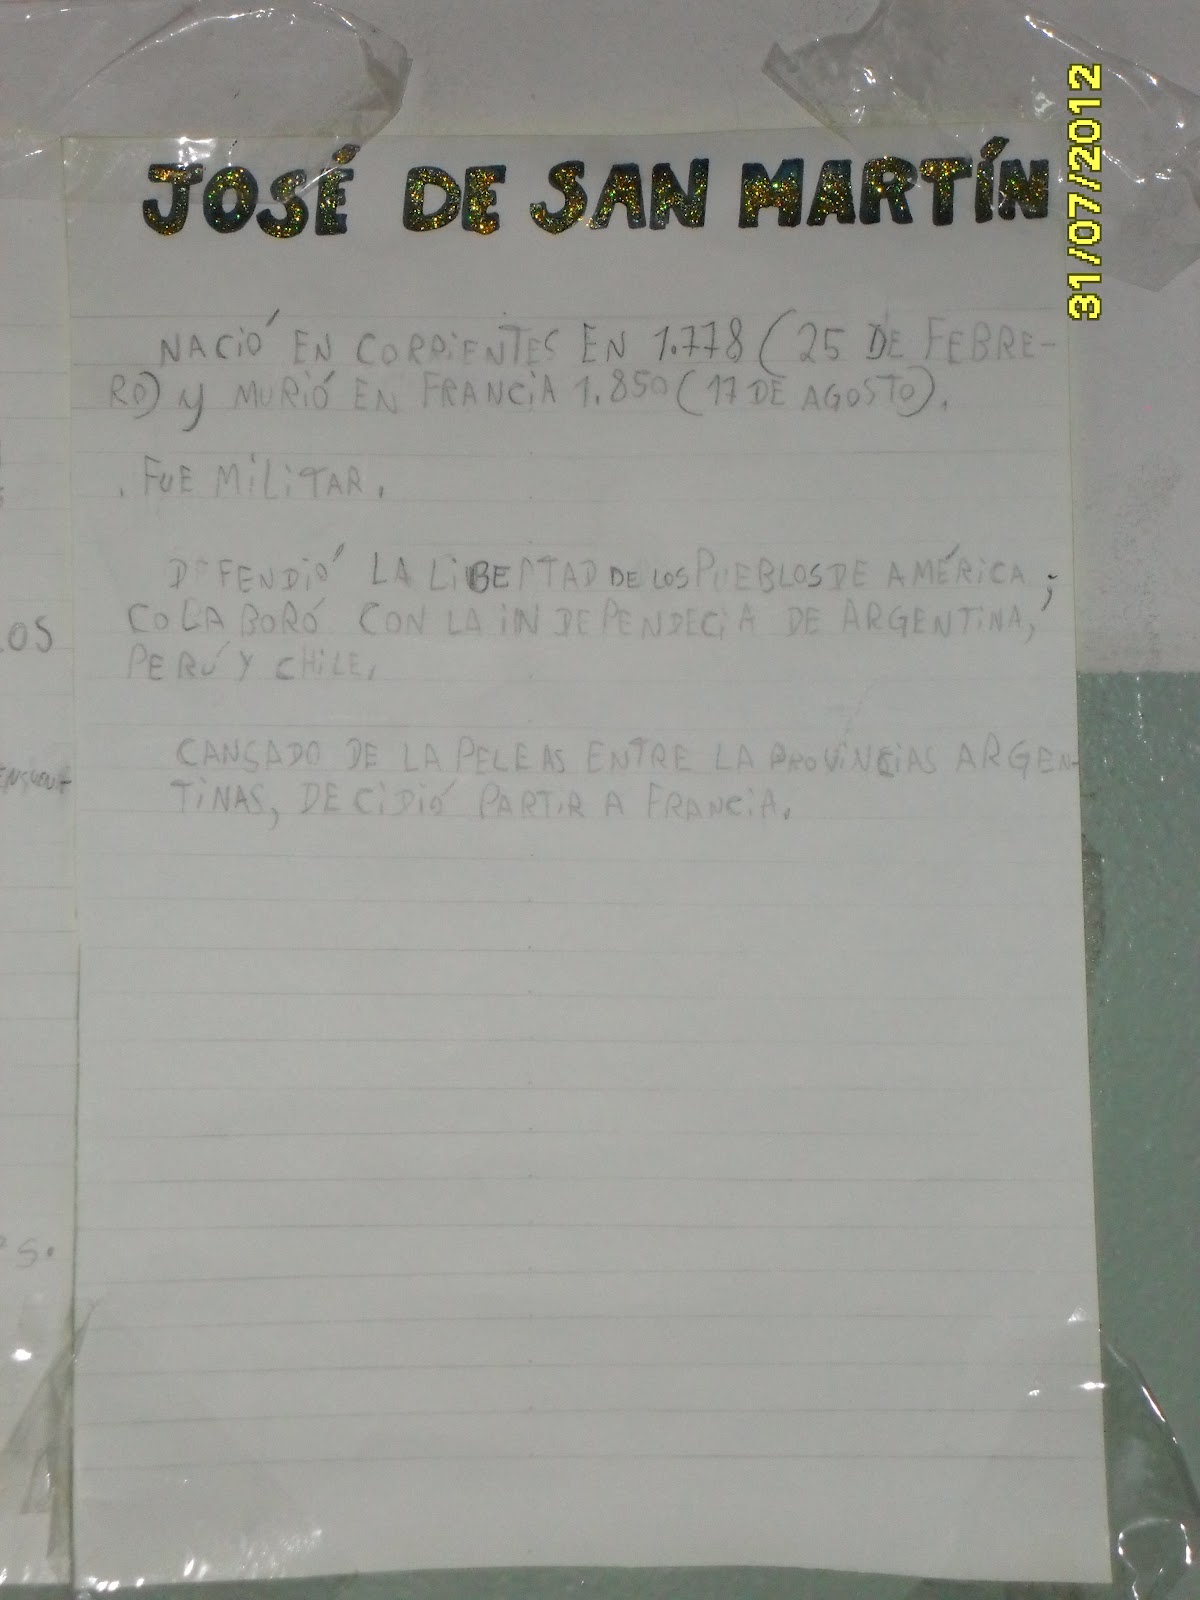 JOSÉ DE SAN MARTÍN
31/07/2012
NACIÓ EN CORRIENTES EN 1.778 (25 DE FEBRE-
RO) y MURIÓ EN FRANCIA 1.850 (17 DE AGOSTO).
. FUE MILITAR.
DEFENDIÓ LA LIBERTAD DE LOS PUEBLOS DE AMÉRICA;
COLABORÓ CON LA INDEPENDECIA DE ARGENTINA,
PERÚ Y CHILE.
CANSADO DE LA PELEAS ENTRE LA PROVINCIAS ARGEN-
TINAS, DECIDIÓ PARTIR A FRANCIA.